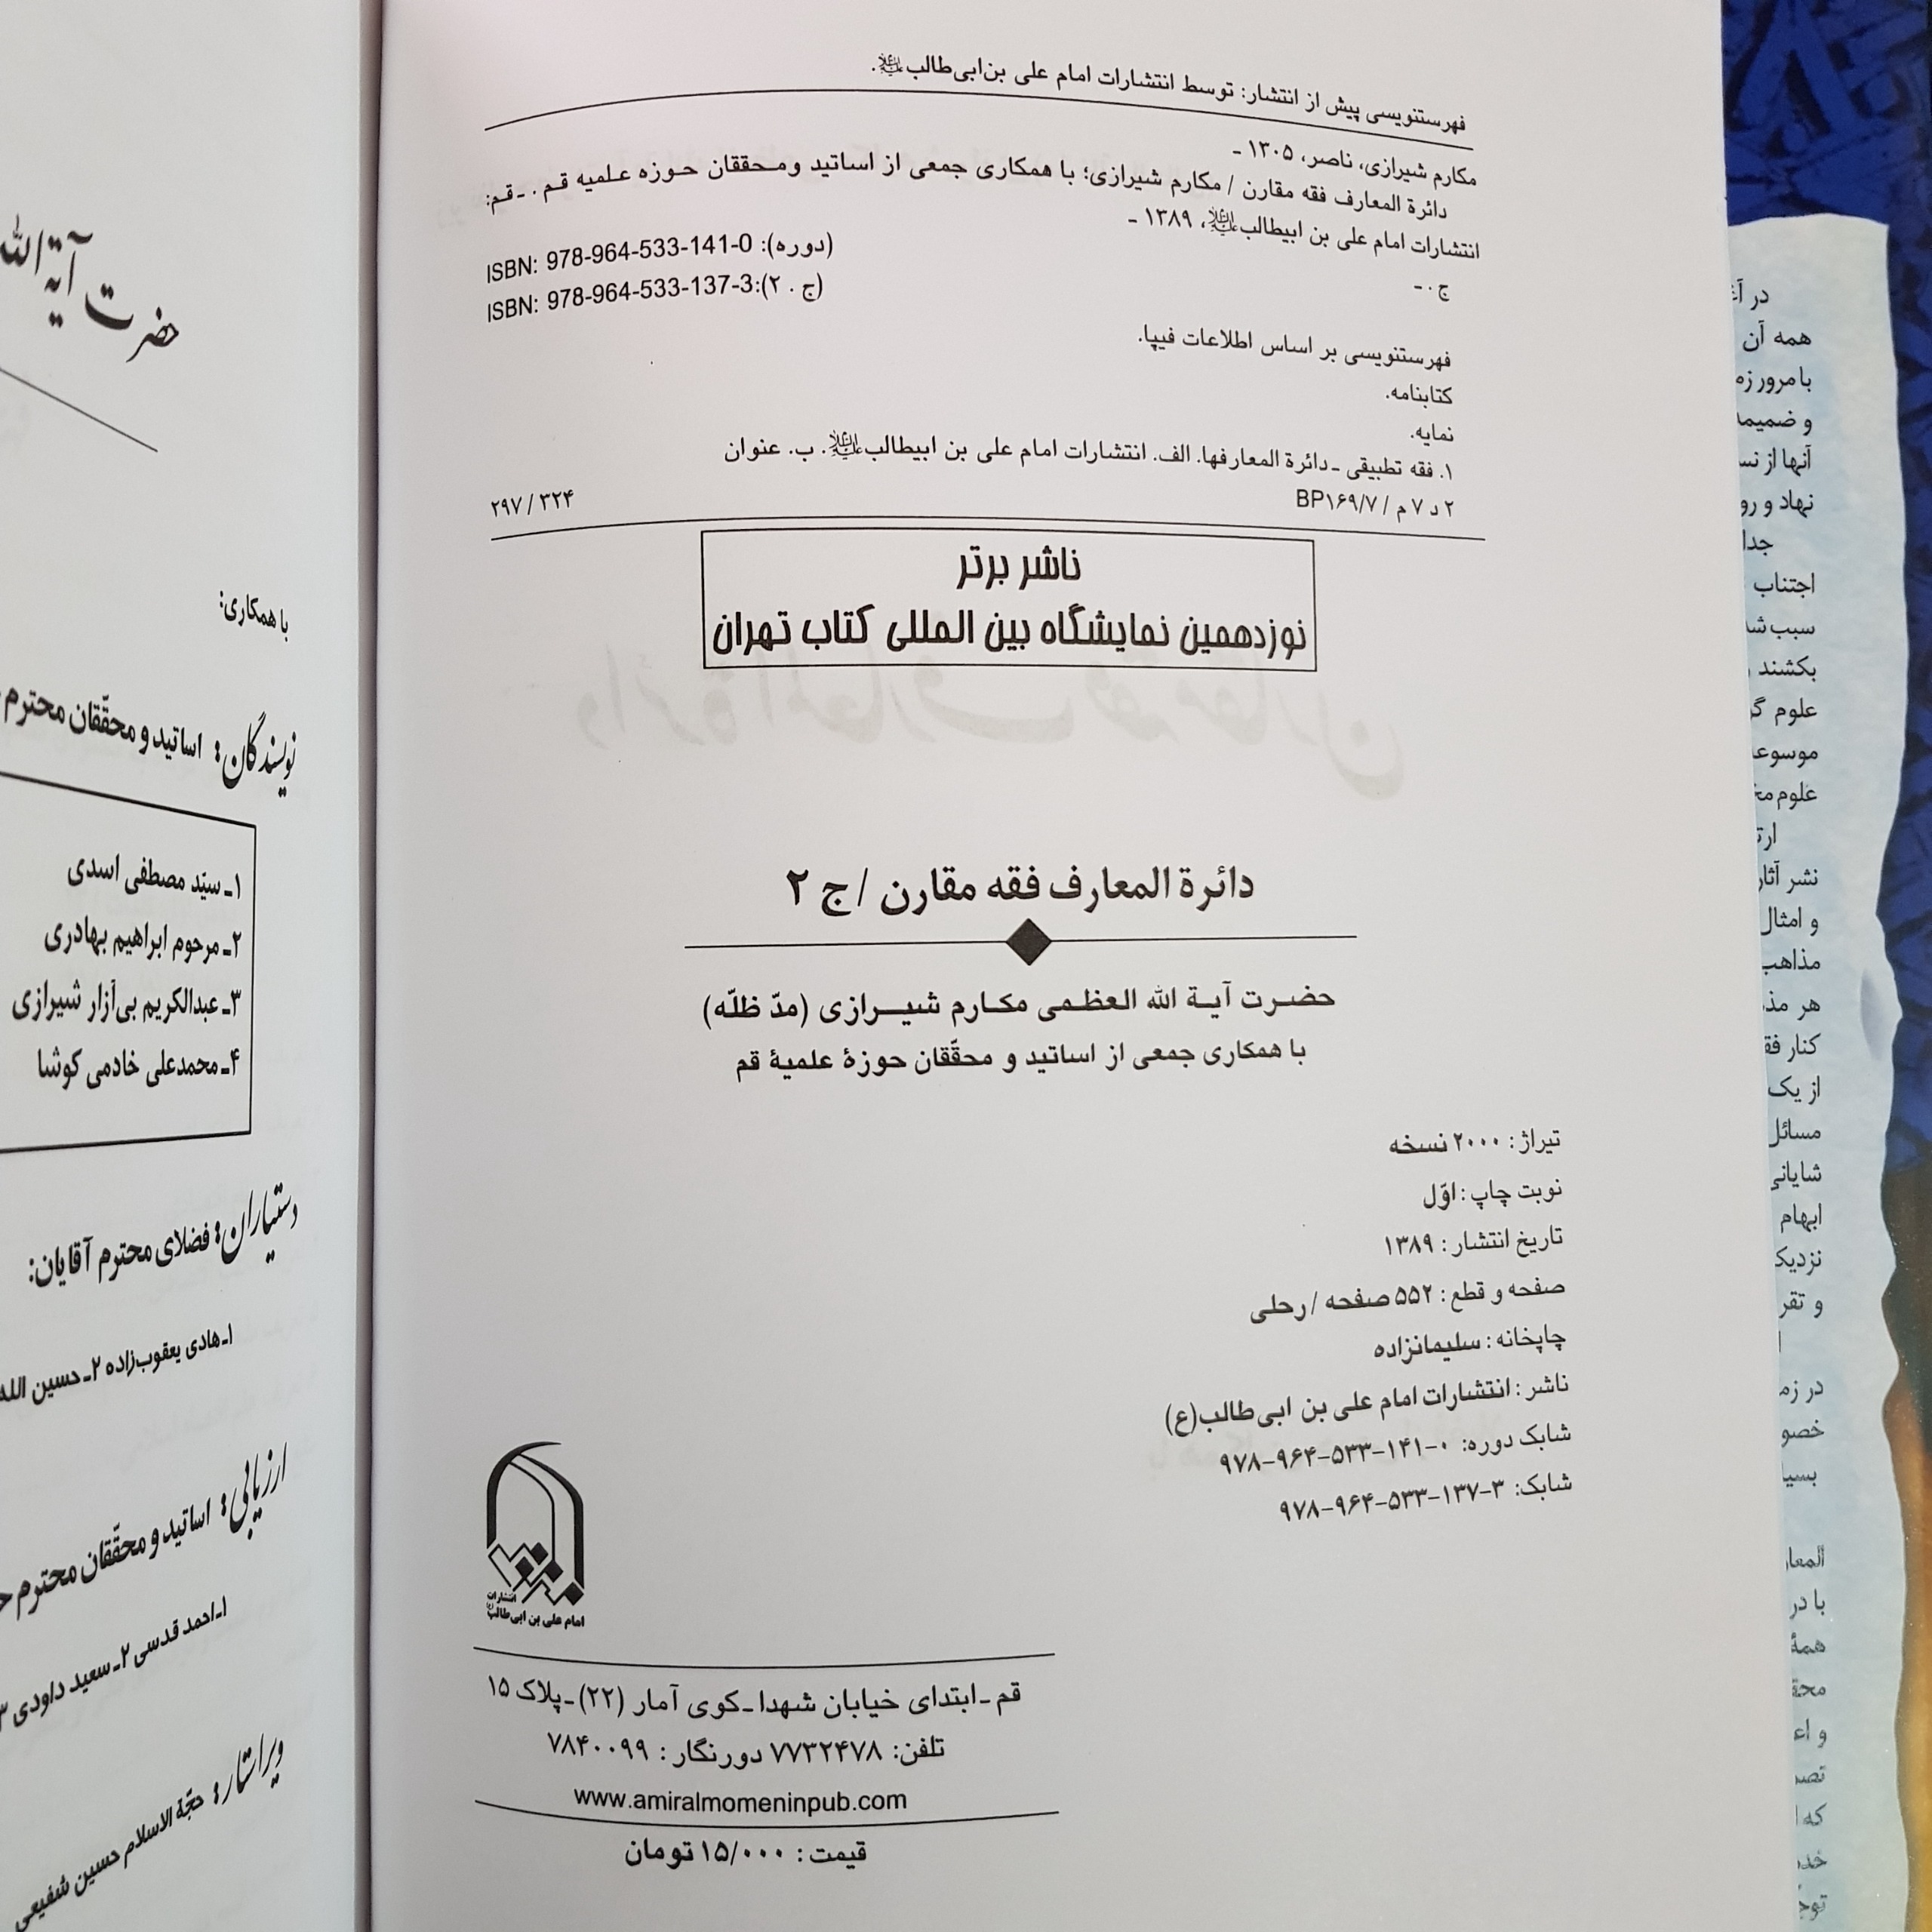 فهرستنویسی پیش از انتشار: توسط انتشارات امام علی بن‌ابی‌طالب علیه‌السلام.
مکارم شیرازی، ناصر، ۱۳۰۵ ـ
دائرة المعارف فقه مقارن / مکارم شیرازی؛ با همکاری جمعی از اساتید ومـحققان حـوزه عـلمیه قـم . ـ قـم:
انتشارات امام علی بن ابیطالب علیه‌السلام، ۱۳۸۹ ـ
ISBN: 978-964-533-141-0 :(دوره)
ج . ـ
ISBN: 978-964-533-137-3:(ج . ۲)
فهرستنویسی بر اساس اطلاعات فیپا.
کتابنامه.
نمایه.
۱. فقه تطبیقی ـ دائرة المعارفها. الف. انتشارات امام علی بن ابیطالب علیه‌السلام. ب. عنوان
۲ د ۷ م / BP۱۶۹/۷
۲۹۷ / ۳۲۴
ناشر برتر
نوزدهمین نمایشگاه بین المللی کتاب تهران
دائرة المعارف فقه مقارن / ج ۲
حضـرت آیـة الله العظـمی مکـارم شیـــرازی (مدّ ظلّه)
با همکاری جمعی از اساتید و محقّقان حوزۀ علمیۀ قم
تیراژ : ۲۰۰۰ نسخه
نوبت چاپ : اوّل
تاریخ انتشار : ۱۳۸۹
صفحه و قطع : ۵۵۲ صفحه / رحلی
چاپخانه : سلیمانزاده
ناشر : انتشارات امام علی بن ابی‌طالب(ع)
شابک دوره: ۰-۱۴۱-۵۳۳-۹۶۴-۹۷۸
شابک: ۳-۱۳۷-۵۳۳-۹۶۴-۹۷۸
انتشارات
امام علی بن ابی‌طالب
قم ـ ابتدای خیابان شهدا ـ کوی آمار (۲۲) ـ پلاک ۱۵
تلفن: ۷۷۳۲۴۷۸ دورنگار : ۷۸۴۰۰۹۹
www.amiralmomeninpub.com
قیمت : ۱۵/۰۰۰ تومان
حضرت آیة الله
با همکاری:
نویسندگان: اساتید و محقّقان محترم
۱ـ سیّد مصطفی اسدی
۲ـ مرحوم ابراهیم بهادری
۳ـ عبدالکریم بی‌آزار شیرازی
۴ـ محمدعلی خادمی کوشا
دستیاران: فضلای محترم آقایان:
۱ـ هادی یعقوب‌زاده ۲ـ حسین الله
ارزیابی: اساتید و محقّقان محترم
۱ـ احمد قدسی ۲ـ سعید داودی ۳
ویراستار: حجّة الاسلام حسین شفیعی
در آغ
همه آن
با مرور زم
و ضمیمه
آنها از نس
نهاد و رو
جدا
اجتناب
سبب شد
بکشند
علوم گر
موسوعه
علوم مخ
ارت
نشر آثار
و امثال
مذاهب
هر مذ
کنار فق
از یک
مسائل
شایانی
ابهام
نزدیک
و تقر
در زم
خصو
بسیا
المعار
با در
همۀ
محق
و اع
تصم
که ا
خد
توج